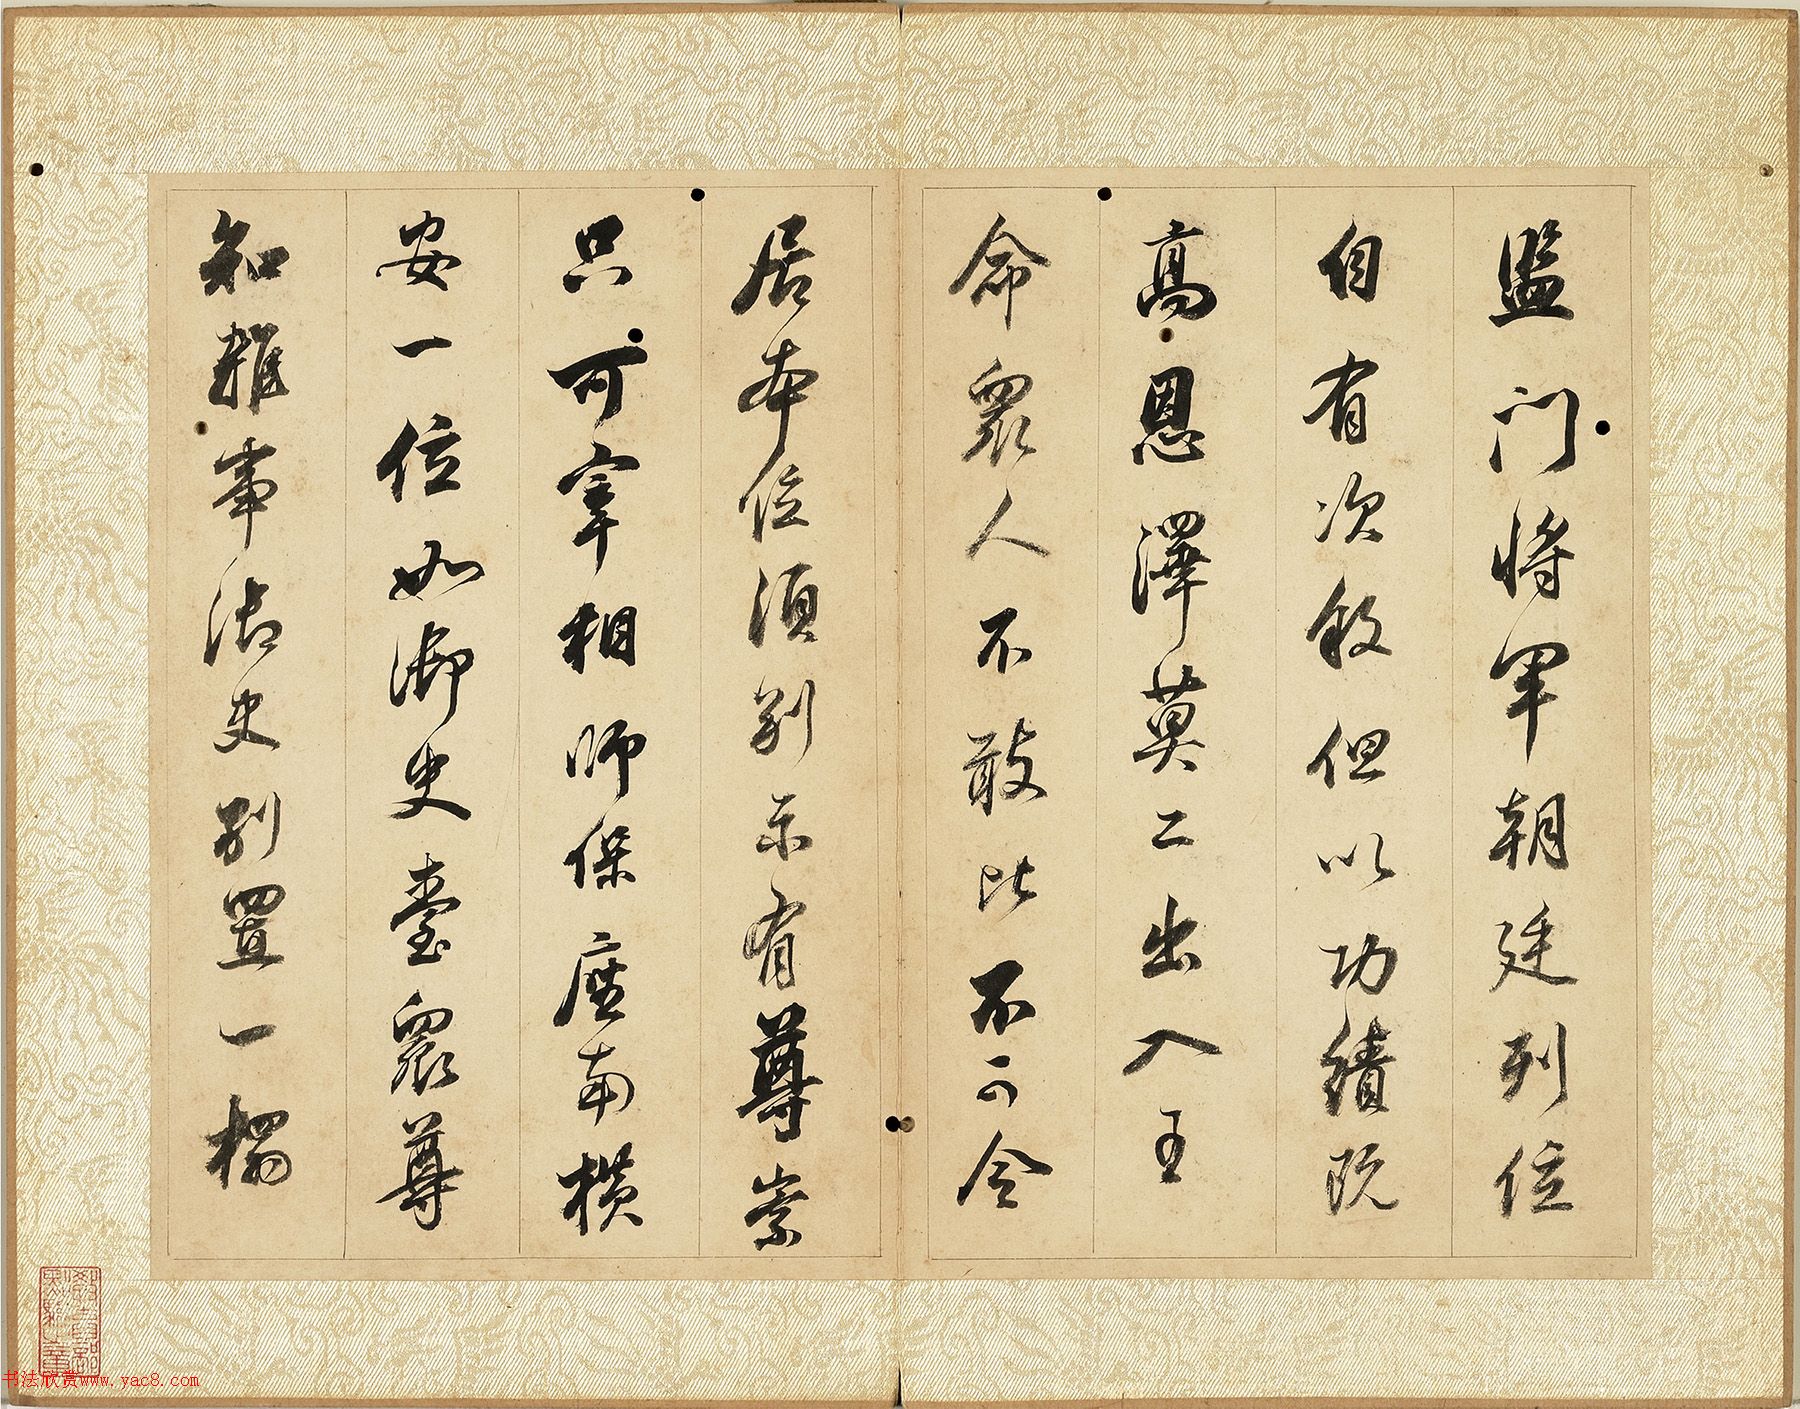 監門將軍朝廷列位
自有次敘但以功績既
高恩澤莫二出入王
命衆人不敢比不可令
居本位須別示有尊崇
只可宰相師保座南橫
安一位如御史臺衆尊
知雜事御史別置一榻
书法欣赏www.yac8.com